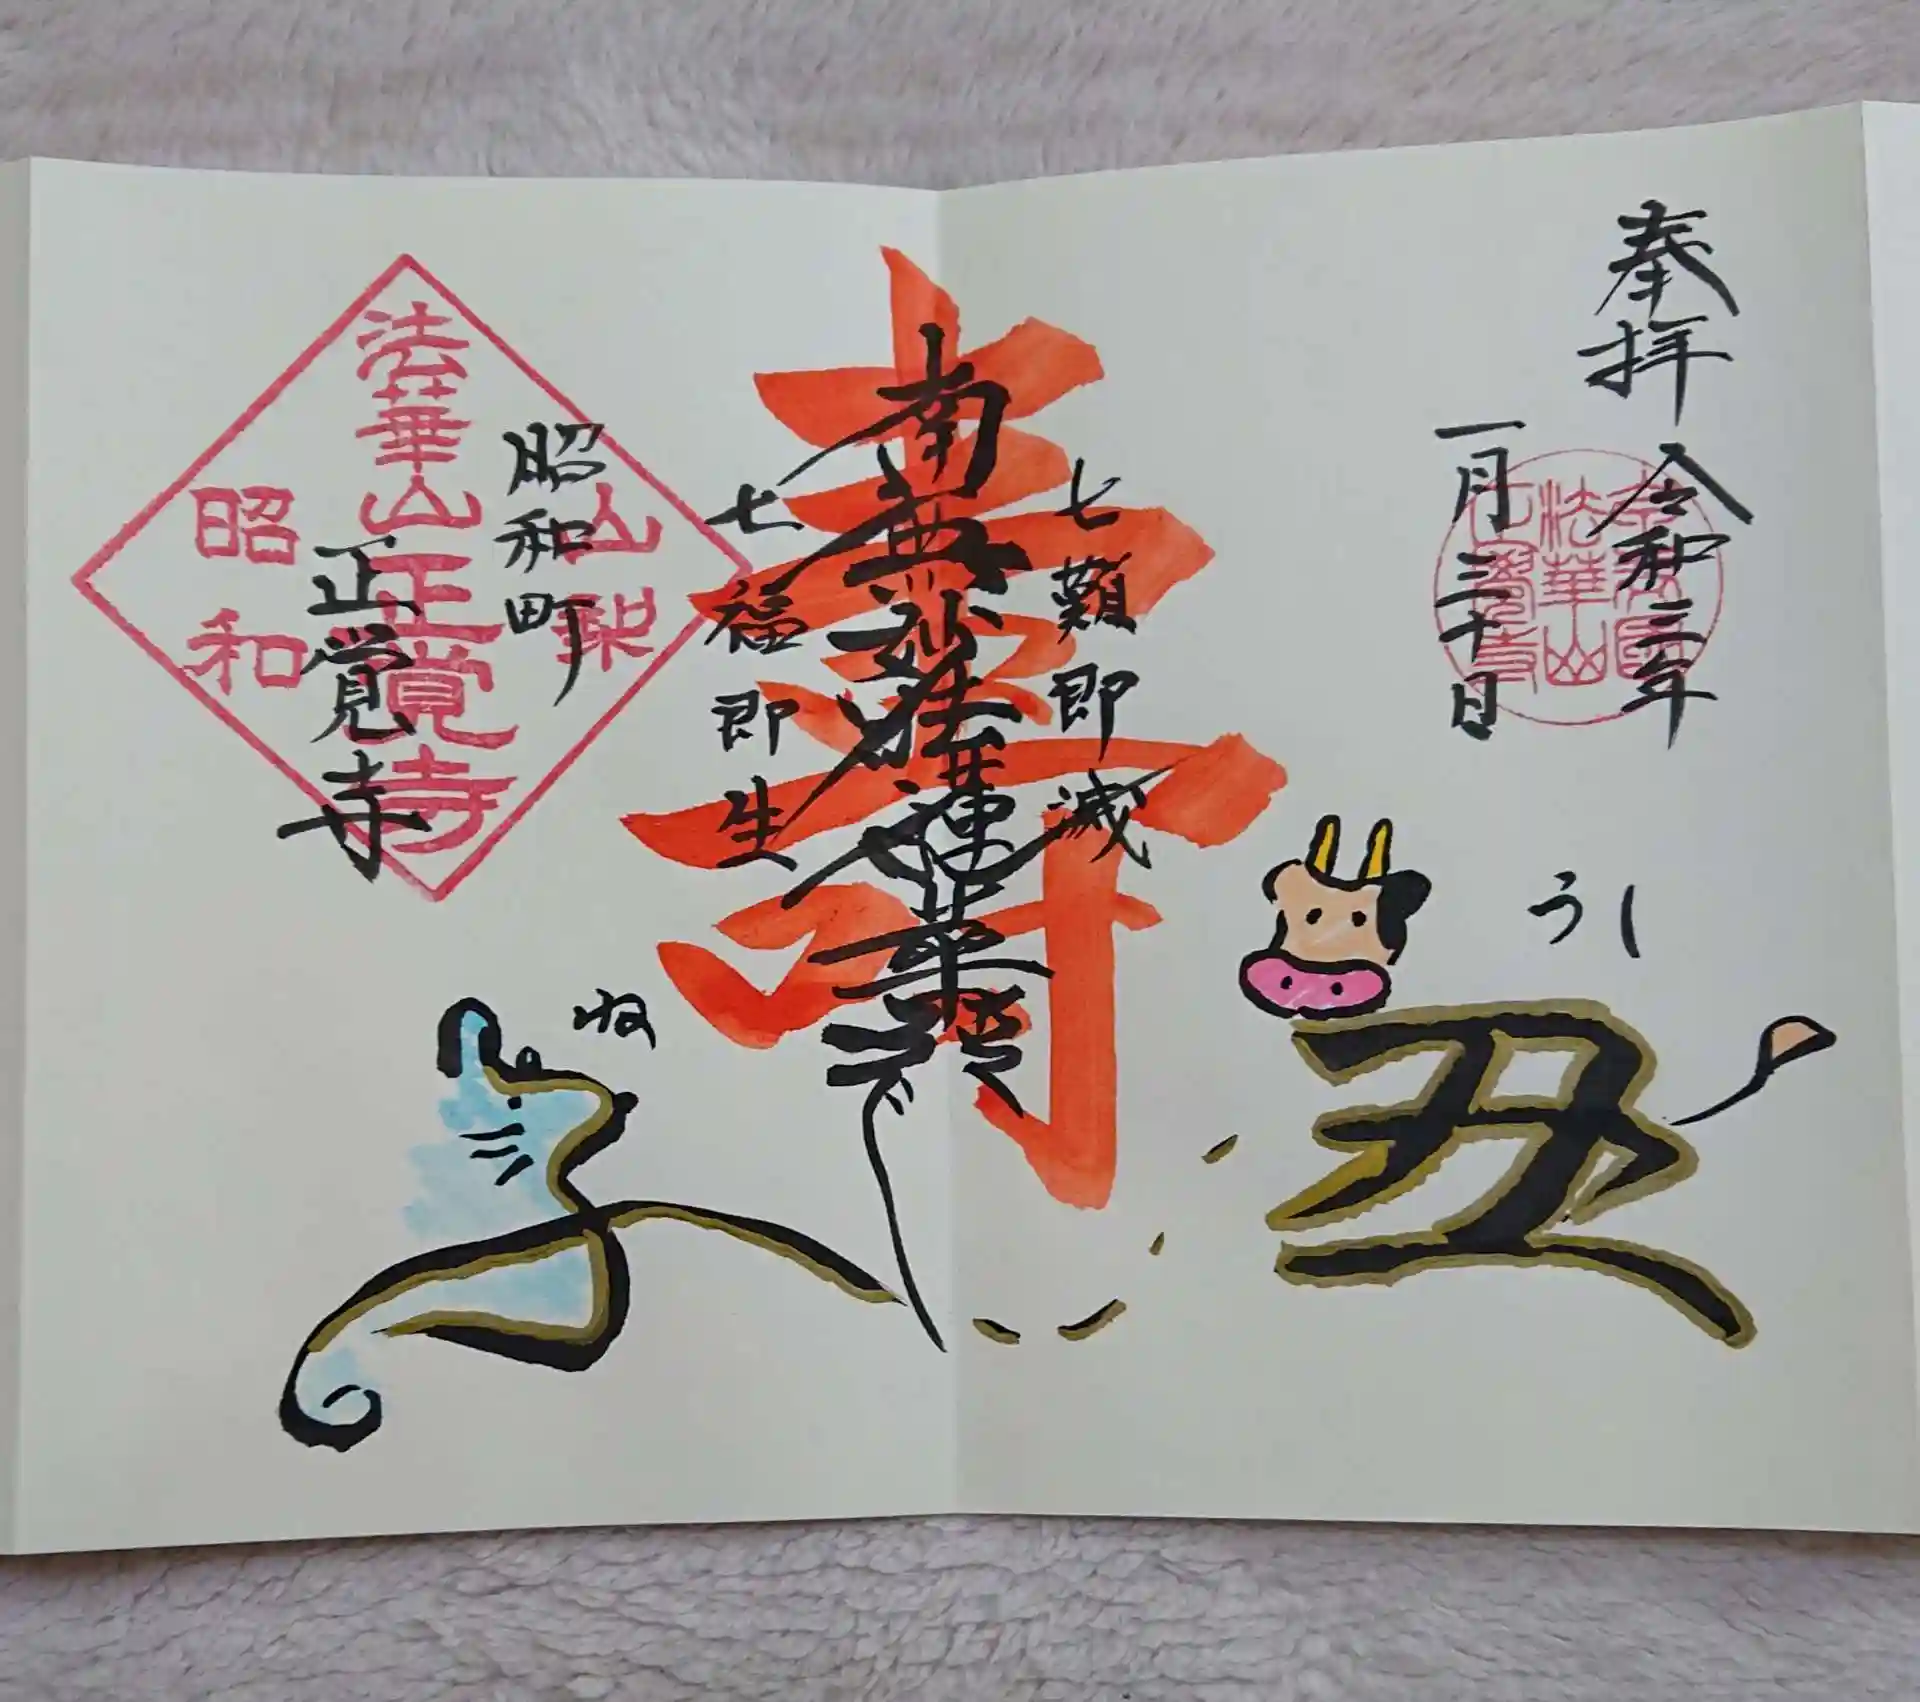 奉拝
令和三年
一月三十日
法華山
うし
丑
七難即滅
壽
南無妙法蓮華経
七福即生
ね
子
昭和町
正覚寺
山梨
法華山正覚寺
昭和